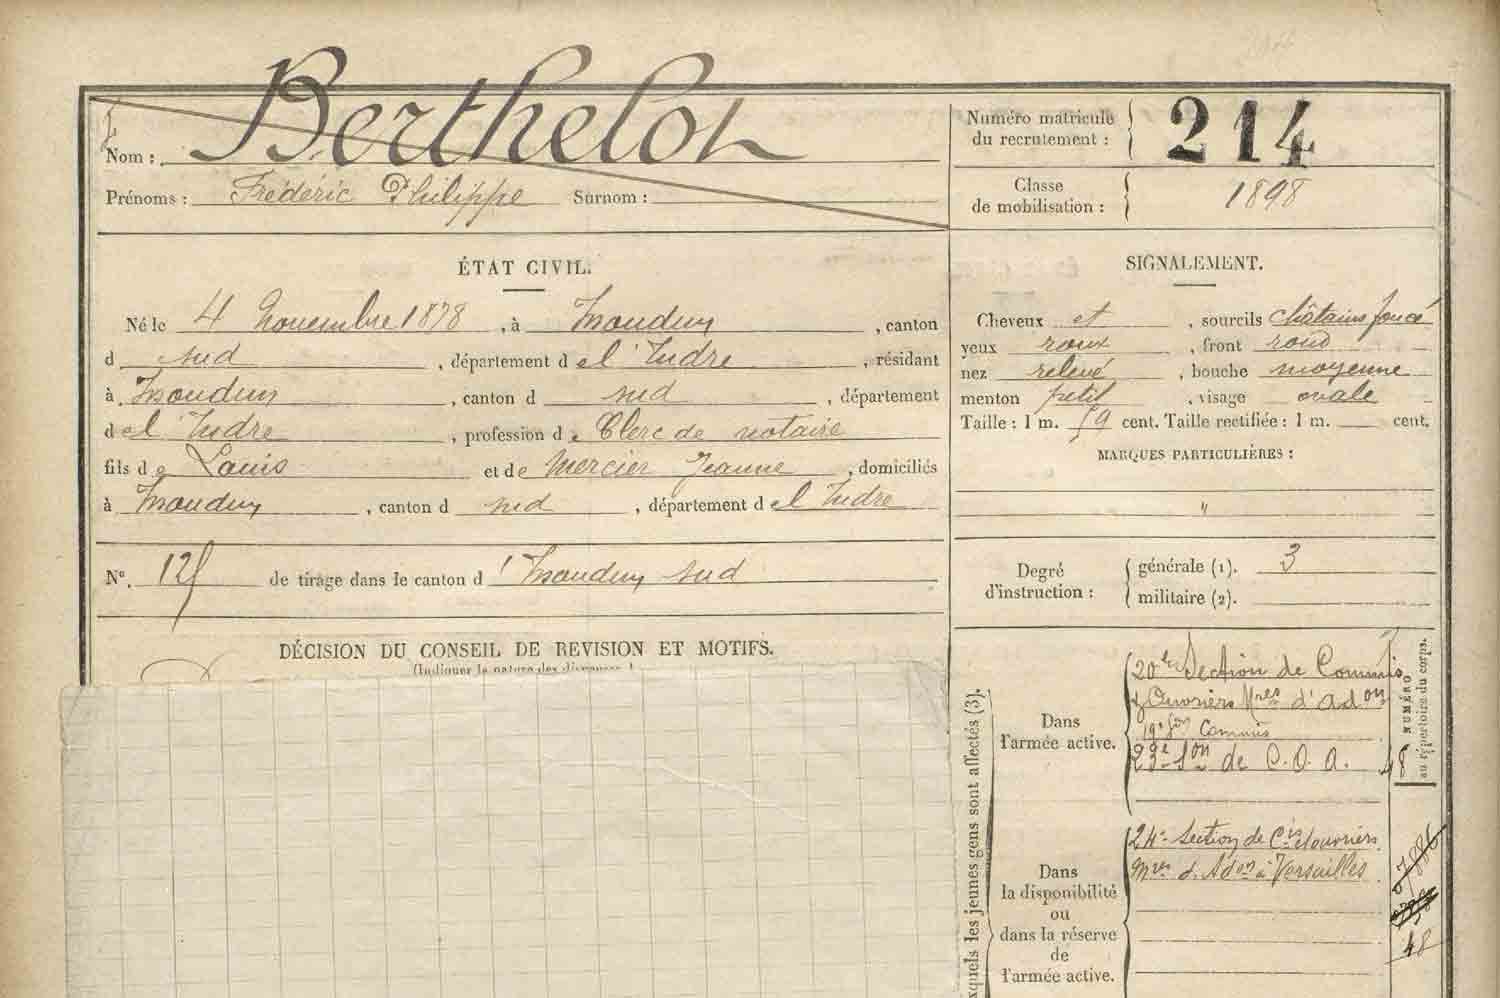 Nom : Berthelot
Prénoms : Frédéric Philippe Surnom :
Numéro matricule
du recrutement : 214
Classe
de mobilisation : 1898
ÉTAT CIVIL.
Né le 4 Novembre 1878, à Issoudun, canton
d sud, département de l'Indre, résidant
à Issoudun, canton d sud, département
de l'Indre, profession de Clerc de notaire
fils de Louis et de Mercier Jeanne, domiciliés
à Issoudun, canton d sud, département de l'Indre
N°. 125 de tirage dans le canton d'Issoudun sud
DÉCISION DU CONSEIL DE REVISION ET MOTIFS.
SIGNALEMENT.
Cheveux et, sourcils châtains foncé
yeux roux, front rond
nez relevé, bouche moyenne
menton petit, visage ovale
Taille : 1 m. 59 cent. Taille rectifiée : 1 m. cent.
MARQUES PARTICULIÈRES :
"
Degré
d'instruction :
générale (1). 3
militaire (2).
xquels les jeunes gens sont affectés (3).
Dans
l'armée active.
20e Section de Commis
& Ouvriers Mres d'Adon
19e Son Commis
23e Son de C.O.A. 48
NUMÉRO
au répertoire du corps.
Dans
la disponibilité
ou
dans la réserve
de
l'armée active.
24e Section de Cis et ouvriers
Mres d'Adon à Versailles
48